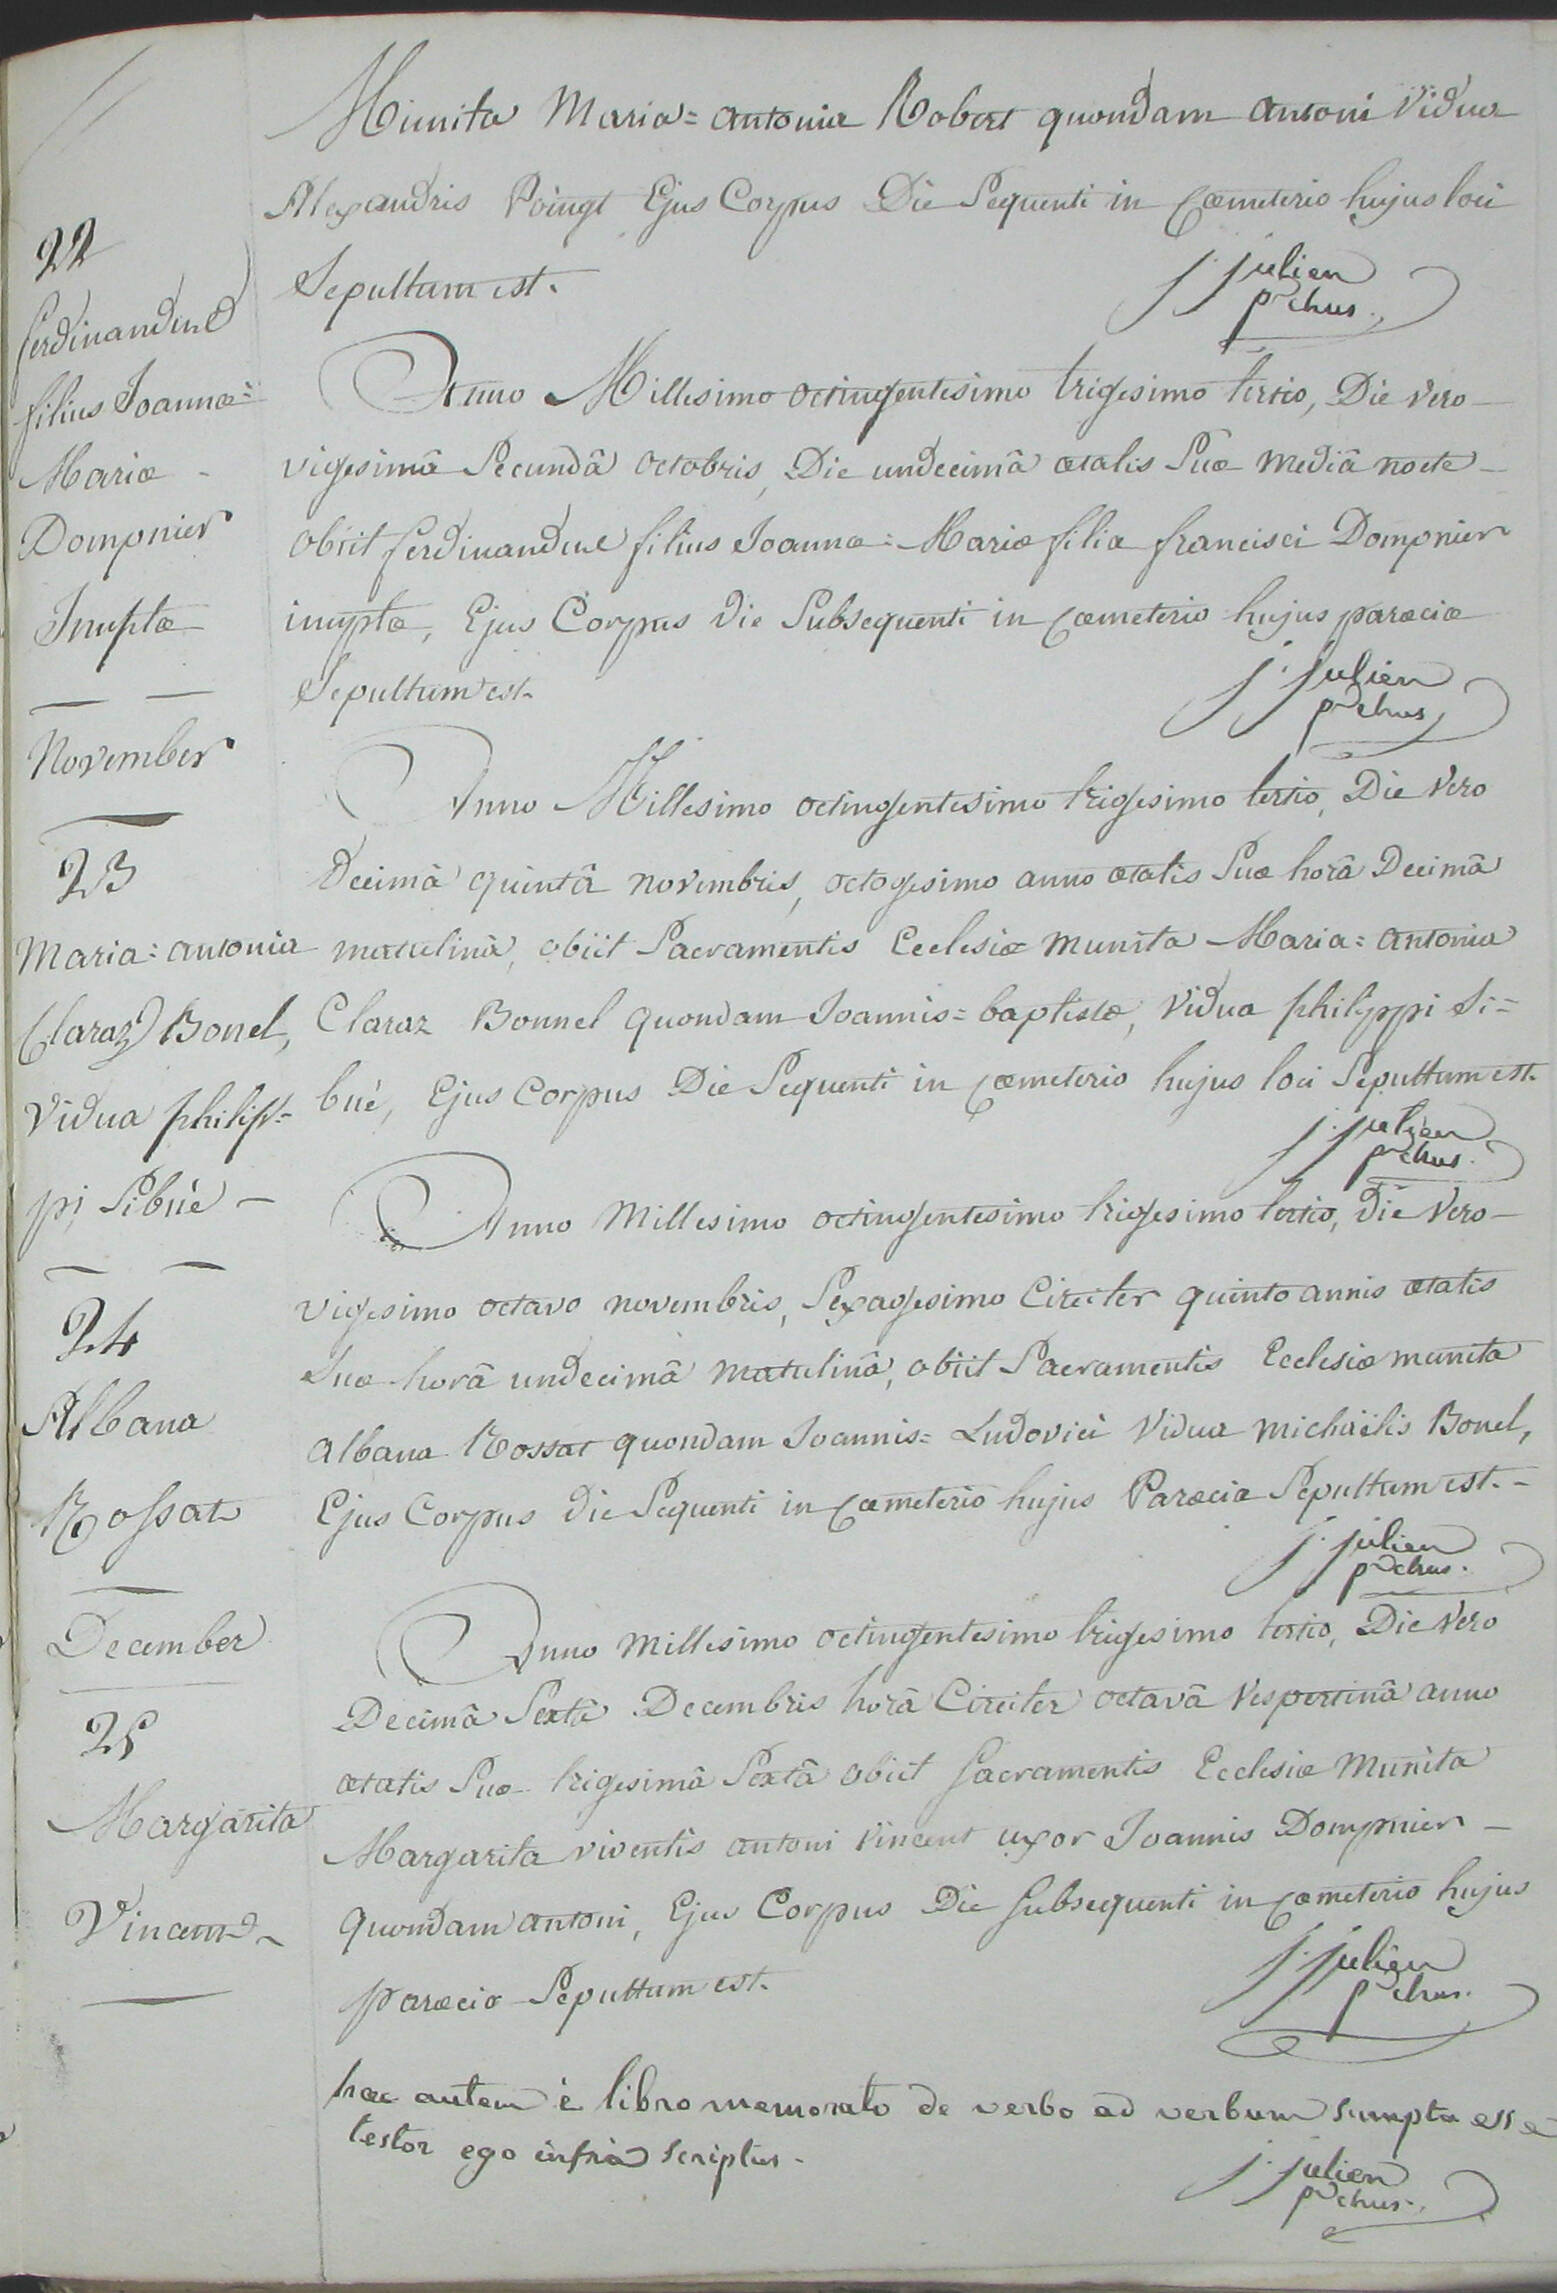 Munita Maria= antonia Robert quondam antoni Vidua
Alexandris Poingt Ejus Corpus Die Sequenti in Cœmeterio hujus loci
Sepultum est.
j. julien
prchus.
22
ferdinandus
filius Joannæ=
Mariæ -
Dompnier
Inuptæ
Anno Millesimo octingentesimo trigesimo tertio, Die vero
vigesimâ Secundâ octobris, Die undecimâ ætatis Suæ mediâ nocte
obiit ferdinandus filius Joannæ= Mariæ filiæ francisci Dompnier
inuptæ, Ejus Corpus Die Subsequenti in Cœmeterio hujus parœciæ
Sepultum est.
j. julien
prchus
November
23
Maria= antonia
Claraz Bonel,
Vidua philip=
pi Sibué -
Anno Millesimo octingentesimo trigesimo tertio, Die Vero
Decimâ quintâ novembris, octogesimo anno ætatis Suæ horâ Decimâ
matutinâ, obiit Sacramentis Ecclesiæ munita Maria= antonia
Claraz Bonnel quondam Joannis= baptistæ, Vidua philippi Si=
bué, Ejus Corpus Die Sequenti in Cœmeterio hujus loci Sepultum est.
j. julien
prchus.
24
Albana
Rossat
Anno Millesimo octingentesimo trigesimo tertio, Die Vero
vigesimo octavo novembris, Sexagesimo Circiter quinto annis ætatis
Suæ horâ undecimâ matutinâ, obiit Sacramentis Ecclesiæ munita
albana Rossat quondam Joannis= Ludovici Vidua michaëlis Bonel,
Ejus Corpus die Sequenti in Cœmeterio hujus Parœciæ Sepultum est. -
j. julien
prchus.
December
25
Margarita
Vincent
Anno Millesimo octingentesimo trigesimo tertio, Die Vero
Decimâ Sextâ Decembris horâ Circiter octavâ Vespertinâ anno
ætatis Suæ trigesimâ Sextâ obiit Sacramentis Ecclesiæ Munita
Margarita viventis antoni Vincent uxor Joannis Dompnier
quondam antoni, Ejus Corpus Die Subsequenti in Cœmeterio hujus
parœciæ Sepultum est.
j. julien
prchus.
hæc autem è libro memorato de verbo ad verbum sumpta esse
testor ego infrà scriptus.
j. julien
prchus.